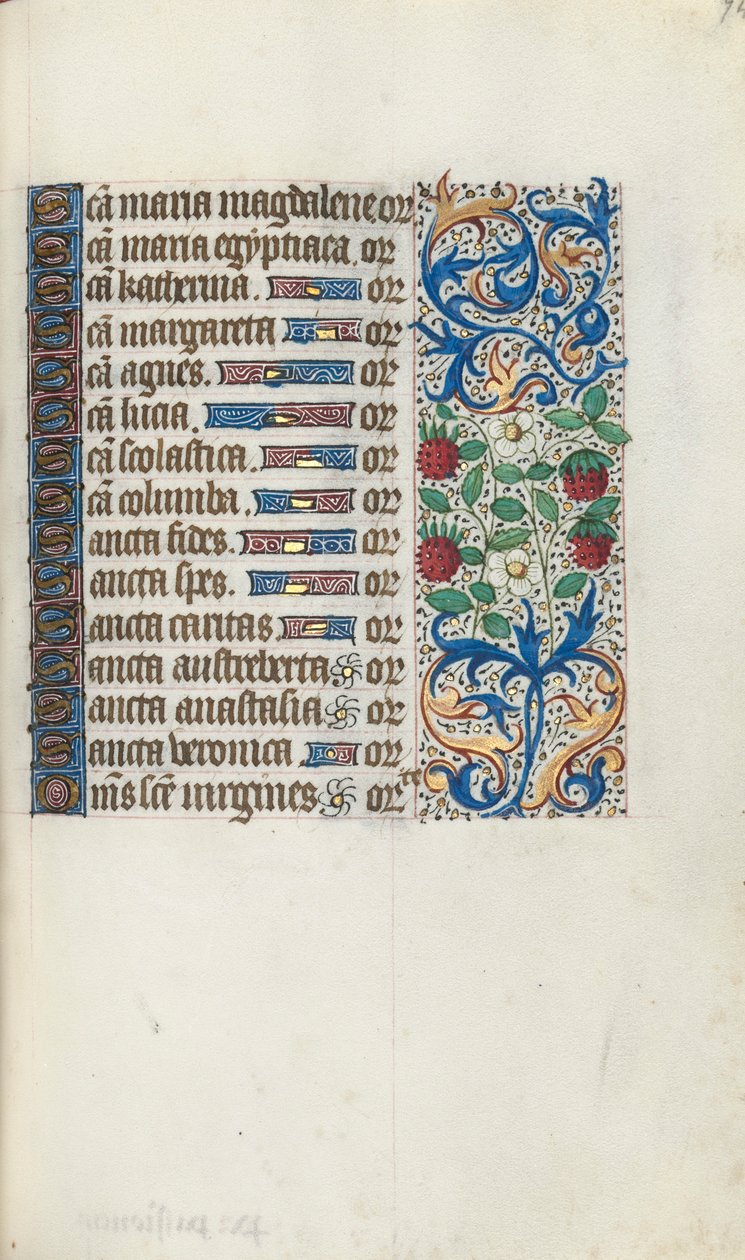 Scā maria magdalene or
Scā maria egyptiaca. or
Scā katherina. or
Scā margareta or
Scā agnes. or
Scā lucia. or
Scā scolastica. or
Scā columba. or
Sancta fides. or
Sancta spes. or
Sancta caritas. or
Sancta austreberta or
Sancta anastasia or
Sancta veronica or
Om̄s sc̄e uirgines orte